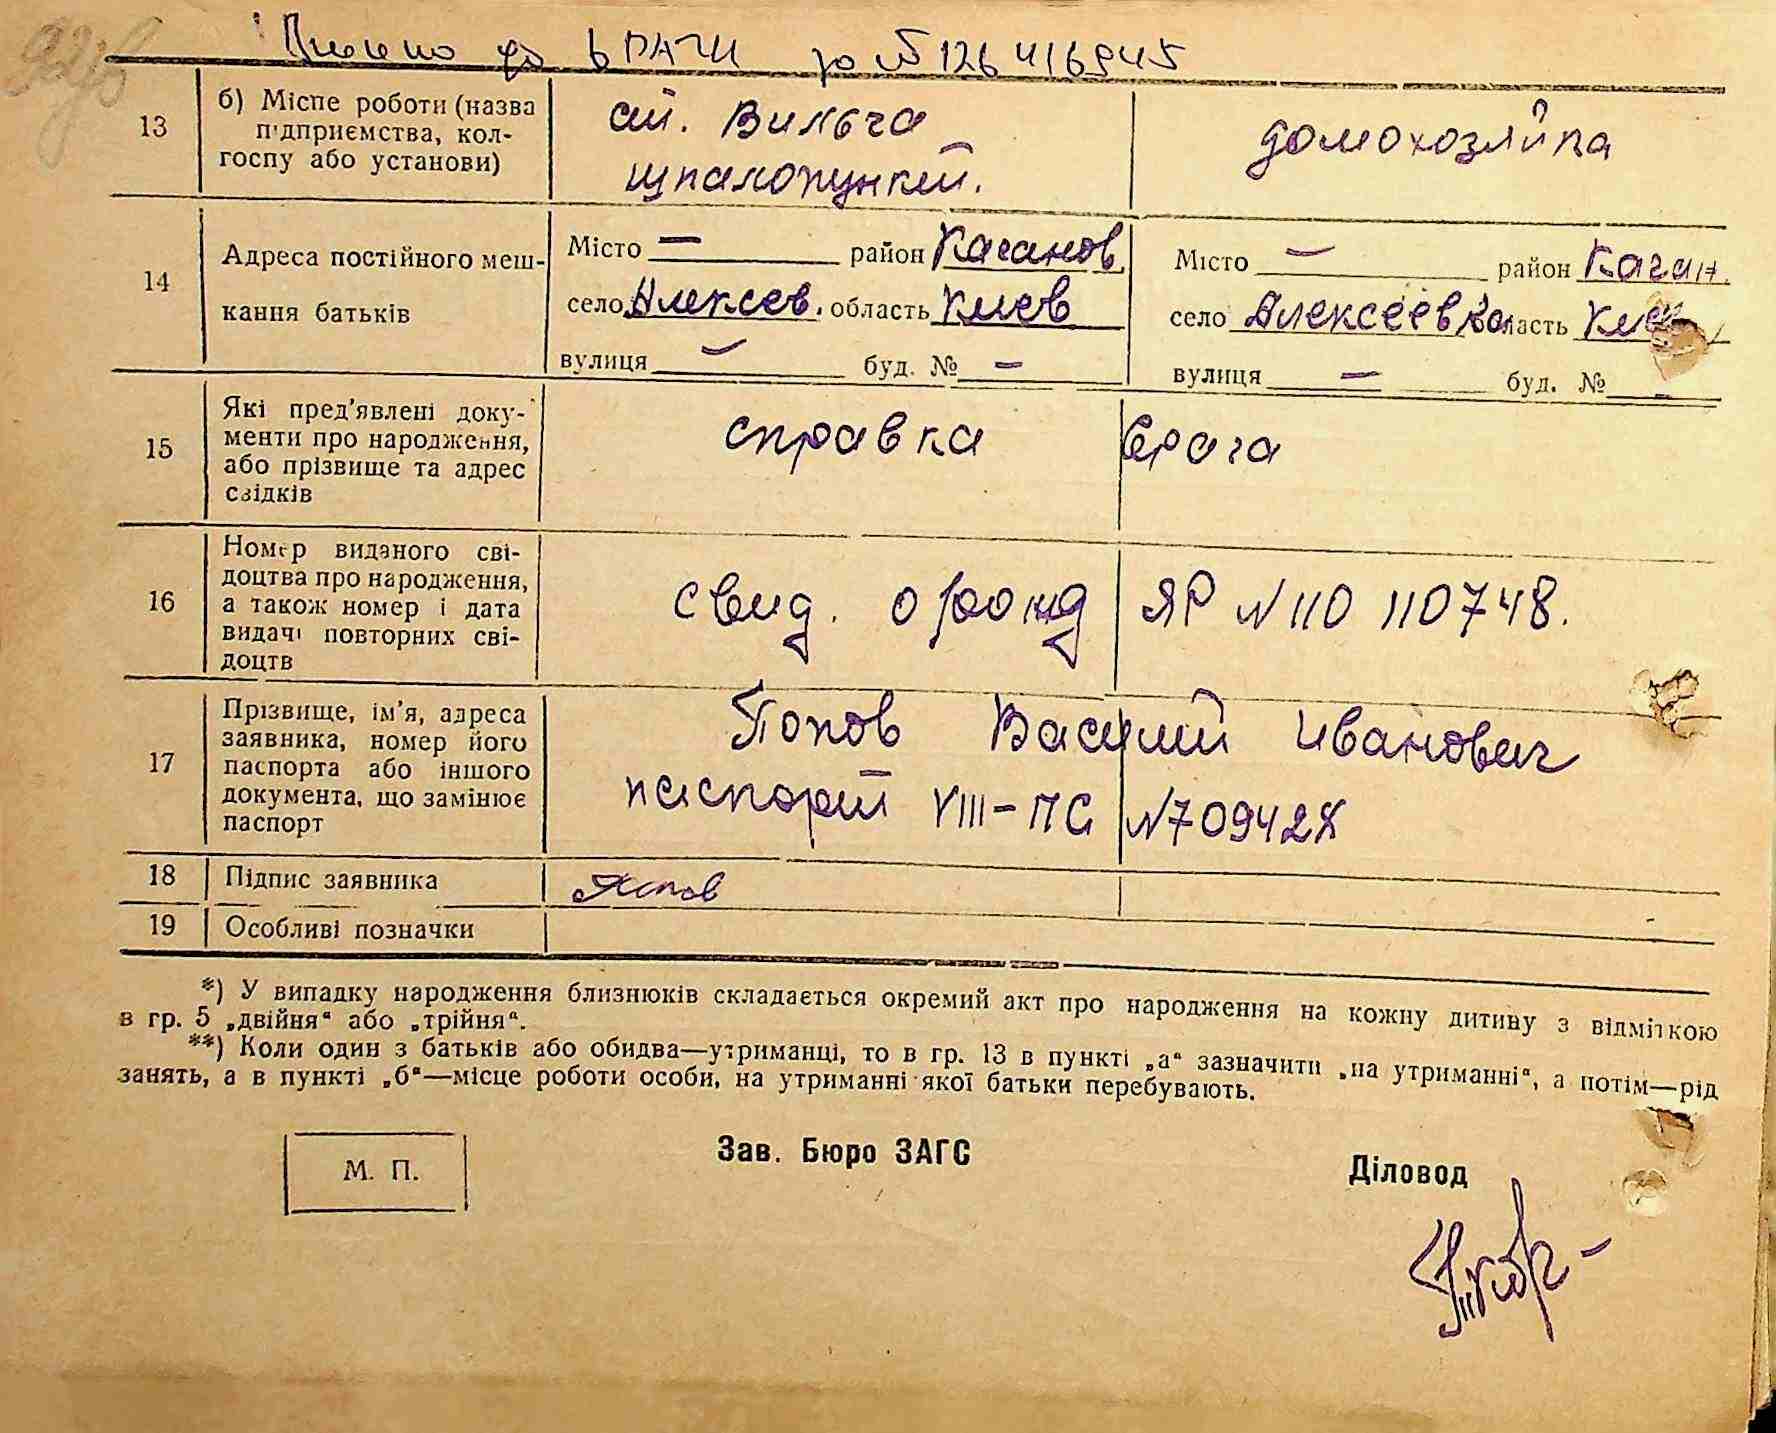 до ВРАГИ за № 126 4/6 1945
13 б) Місце роботи (назва підприємства, колгоспу або установи)
ст. Вильча
шпалопункт.
домохозяйка
14 Адреса постійного мешкання батьків
Місто — район Каганов.
село Алексеев. область Киев
вулиця — буд. № —
Місто — район Каган.
село Алексеевка область Киев
вулиця — буд. № —
15 Які пред'явлені документи про народження, або прізвище та адрес свідків
справка врача
16 Номер виданого свідоцтва про народження, а також номер і дата видачі повторних свідоцтв
свид. о рожд ЯР № 110 110748.
17 Прізвище, ім'я, адреса заявника, номер його паспорта або іншого документа, що замінює паспорт
Попов Василий Иванович
паспорт VIII-ПС № 709428
18 Підпис заявника
Попов
19 Особливі позначки
*) У випадку народження близнюків складається окремий акт про народження на кожну дитину з відміткою
в гр. 5 „двійня“ або „трійня“.
**) Коли один з батьків або обидва—утриманці, то в гр. 13 в пункті „а“ зазначити „на утриманні“, а потім—рід
занять, а в пункті „б“—місце роботи особи, на утриманні якої батьки перебувають.
М. П.
Зав. Бюро ЗАГС
Діловод